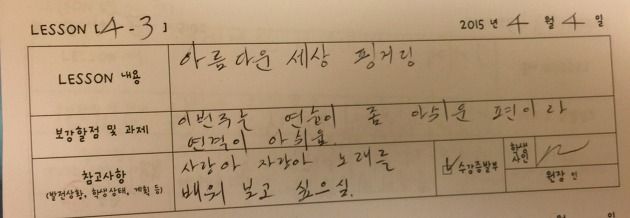 LESSON [4-3] 2015 년 4 월 4 일
LESSON 내용
아름다운 세상 핑거링
보강할점 및 과제
이번주는 연습이 좀 아쉬운 편이라
연결이 아쉬움.
참고사항
(발전상황, 학생상태, 계획 등)
사랑아 자장아 노래를
배워 보고 싶으심.
수강증발부
학생
사인
원장 인
년 월 일